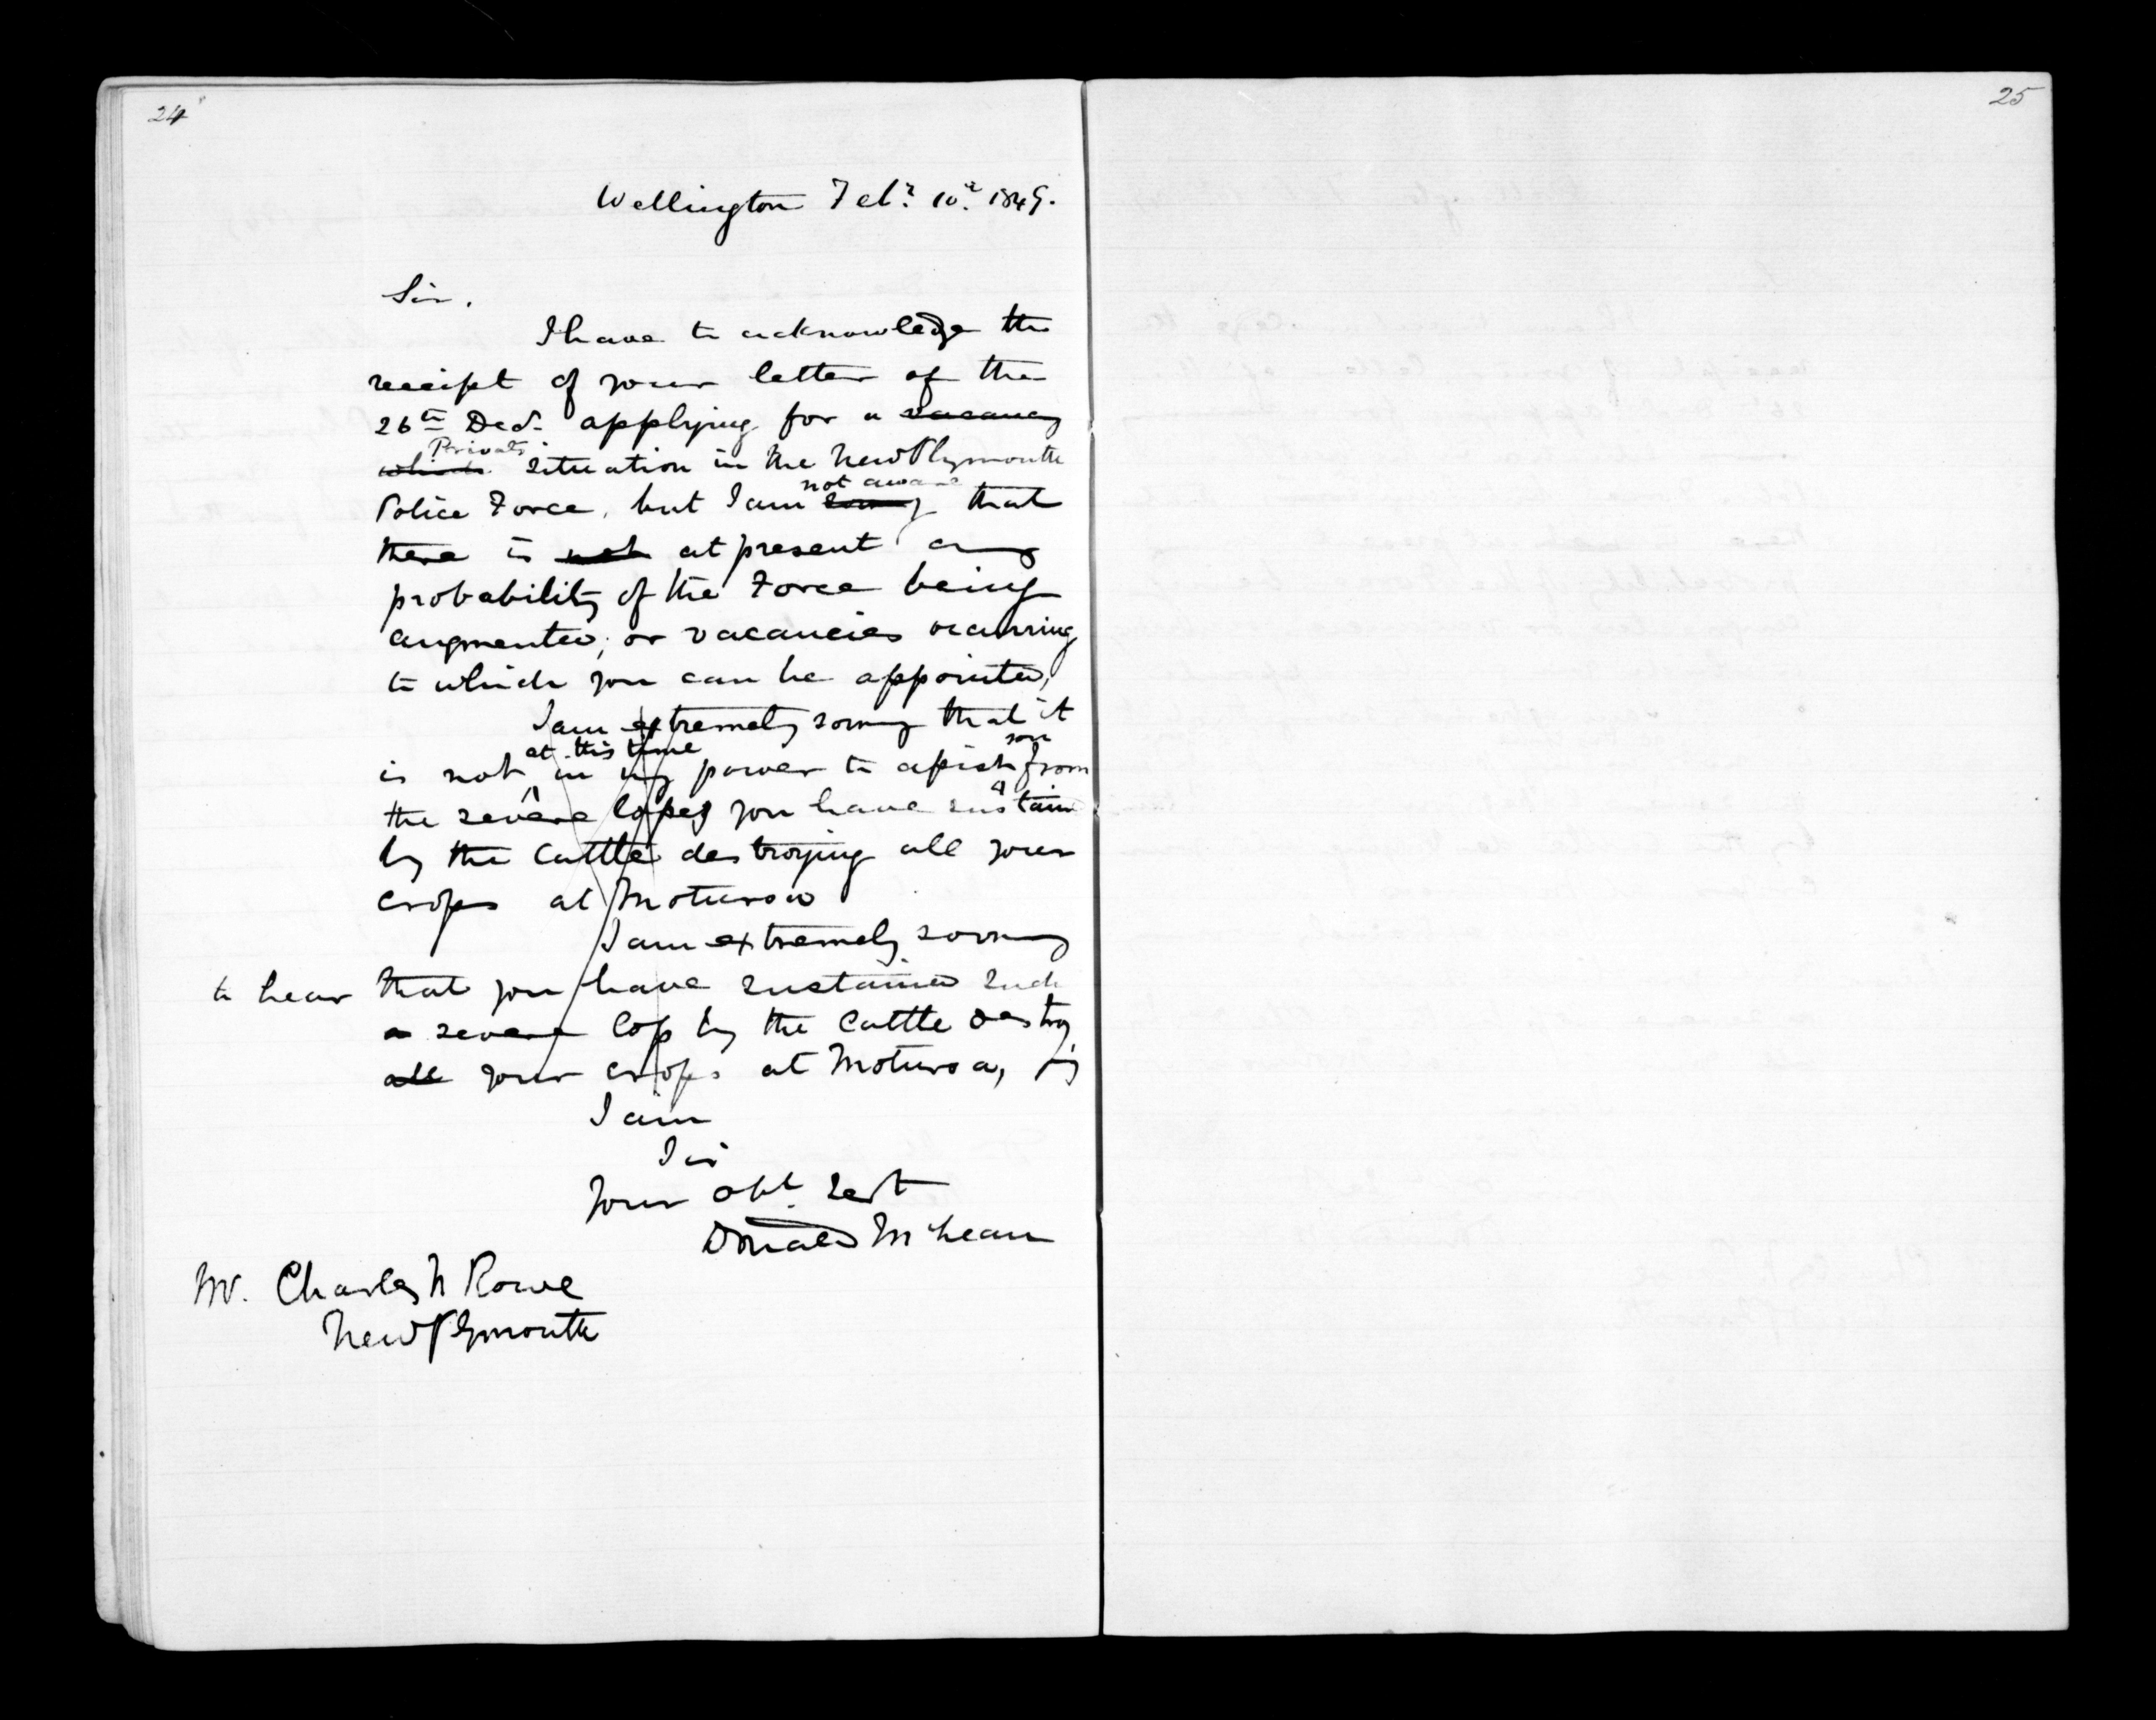 24
25
Wellington Feby. 10th. 1849.
Sir,
I have to acknowledge the
receipt of your letter of the
26th Decr. applying for a vacancy
which Privates situation in the New Plymouth
Police Force, but I am sorry not aware that
there is not at present any
probability of the Force being
augmented, or vacancies occurring
to which you can be appointed,
I am extremely sorry that it
is not at this time in my power to assist you from
the severe losses you have sustained
by the Cattle destroying all your
crops at Moturoa
I am extremely sorry
to hear that you have sustained such
a severe loss by the Cattle destroy
all your crops at Moturoa, ing
I am
Sir
Your obt. Sert
Donald McLean
Mr. Charles N Rowe
New Plymouth